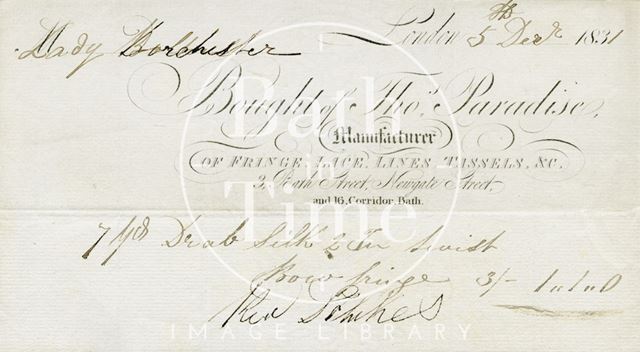 London 5th Decr. 1831
Lady Bolchester
Bought of Thos. Paradise,
Manufacturer
OF FRINGE, LACE, LINES, TASSELS, &C.
3, Bath Street, Newgate Street,
and 16, Corridor, Bath.
7 yds Drab Silk 2 In twist
Bow fringe 3/- 1"1"0
Bath
in
Time
IMAGE LIBRARY